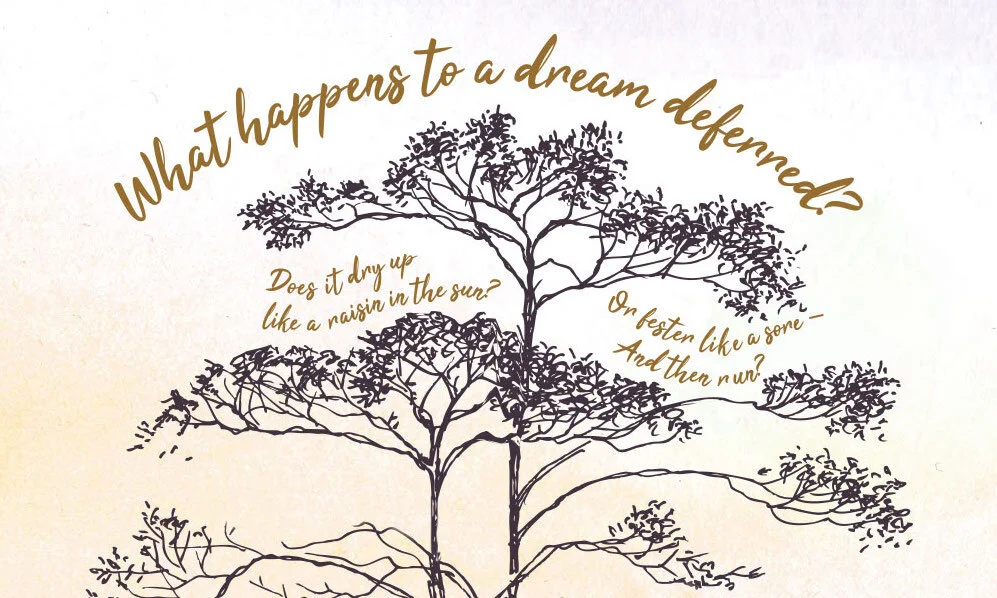 What happens to a dream deferred?
Does it dry up
like a raisin in the sun?
Or fester like a sore –
And then run?